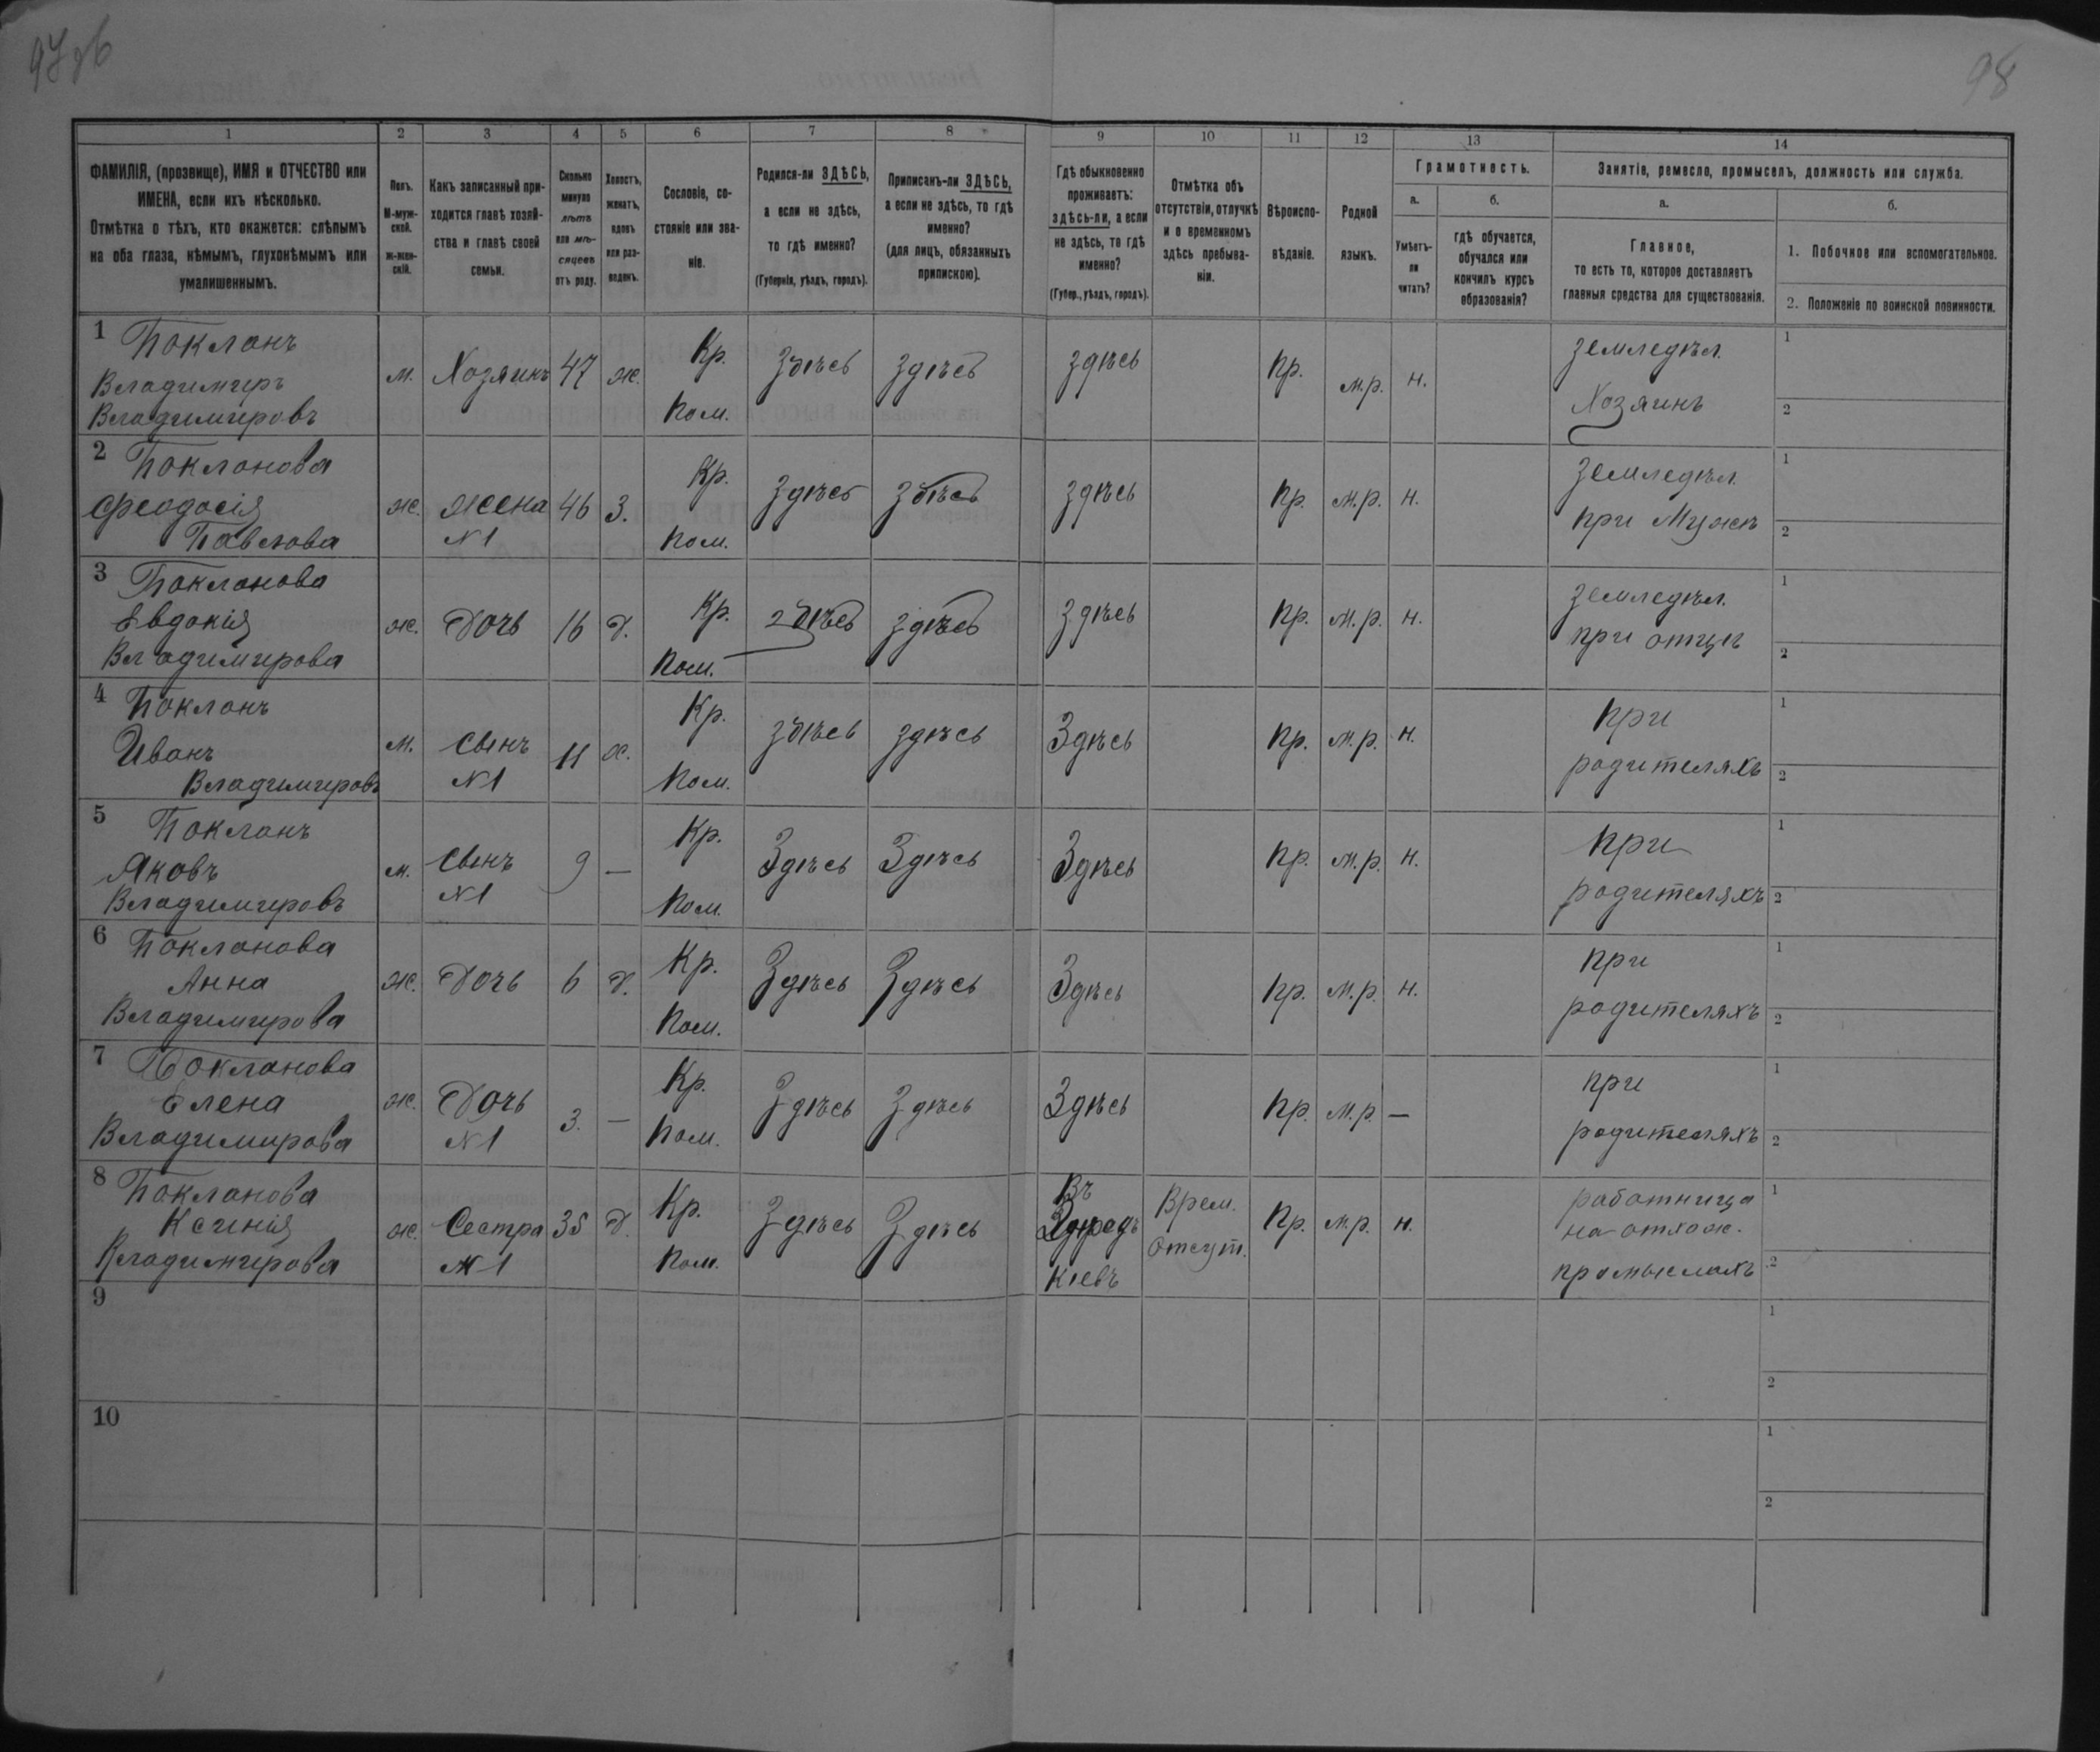 97об
98
1 2 3 4 5 6 7 8 9 10 11 12 13 14
ФАМИЛІЯ, (прозвище), ИМЯ и ОТЧЕСТВО или
ИМЕНА, если ихъ нѣсколько.
Отмѣтка о тѣхъ, кто окажется: слѣпымъ
на оба глаза, нѣмымъ, глухонѣмымъ или
умалишеннымъ.
Полъ.
М-муж-
ской.
ж-жен-
скій.
Какъ записанный при-
ходится главѣ хозяй-
ства и главѣ своей
семьи.
Сколько
минуло
лѣтъ
или мѣ-
сяцевъ
отъ роду.
Холостъ,
женатъ,
вдовъ
или раз-
веденъ.
Сословіе, со-
стояніе или зва-
ніе.
Родился-ли ЗДѢСЬ,
а если не здѣсь,
то гдѣ именно?
(Губернія, уѣздъ, городъ).
Приписанъ-ли ЗДѢСЬ,
а если не здѣсь, то гдѣ
именно?
(для лицъ, обязанныхъ
припискою).
Гдѣ обыкновенно
проживаетъ:
здѣсь-ли, а если
не здѣсь, то гдѣ
именно?
(Губер., уѣздъ, городъ).
Отмѣтка объ
отсутствіи, отлучкѣ
и о временномъ
здѣсь пребыва-
ніи.
Вѣроиспо-
вѣданіе.
Родной
языкъ.
Грамотность.
а.
Умѣетъ-
ли
читать?
б.
гдѣ обучается,
обучался или
кончилъ курсъ
образованія?
Занятіе, ремесло, промыселъ, должность или служба.
а.
Главное,
то есть то, которое доставляетъ
главныя средства для существованія.
б.
1. Побочное или вспомогательное.
2. Положеніе по воинской повинности.
1 Бокланъ
Владимиръ
Владимировъ
м. Хозяинъ 47 ж. Кр. Пом. здѣсь здѣсь здѣсь Пр. м.р. н. земледѣл. Хозяинъ 1 2
2 Бокланова
Феодосія
Павлова
ж. жена №1 46 З. Кр. Пом. здѣсь здѣсь здѣсь Пр. м.р. н. земледѣл. при Мужѣ 1 2
3 Бокланова
Евдокія
Владимирова
ж. Дочь 16 д. Кр. Пом. здѣсь здѣсь здѣсь Пр. м.р. н. земледѣл. при отцѣ 1 2
4 Бокланъ
Иванъ
Владимировъ
м. Сынъ №1 11 х. Кр. Пом. здѣсь здѣсь Здѣсь Пр. м.р. н. при родителяхъ 1 2
5 Бокланъ
Яковъ
Владимировъ
м. Сынъ №1 9 — Кр. Пом. Здѣсь Здѣсь Здѣсь Пр. м.р. н. при родителяхъ 1 2
6 Бокланова
Анна
Владимирова
ж. Дочь 6 д. Кр. Пом. Здѣсь Здѣсь Здѣсь Пр. м.р. н. при родителяхъ 1 2
7 Бокланова
Елена
Владимирова
ж. Дочь №1 3. — Кр. Пом. Здѣсь Здѣсь Здѣсь Пр. м.р. — при родителяхъ 1 2
8 Бокланова
Ксинія
Владимирова
ж. Сестра №1 35 д. Кр. Пом. Здѣсь Здѣсь Въ Кіевъ Врем. Отсут. Пр. м.р. н. работница на отхож. промыслахъ 1 2
9
1
2
10
1
2